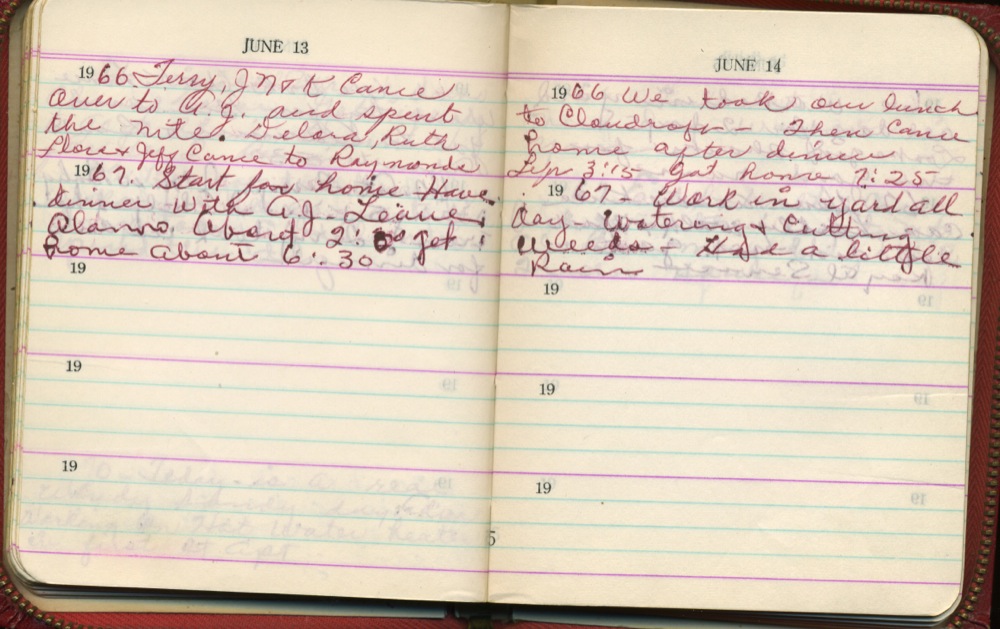 JUNE 13
1966 Terry, J N & K Came
over to A.J. and spent
the nite. Delora, Ruth
Flora & Jeff Came to Raymonds
1967. Start for home Have
dinner with A.J. - Leave
Alamo. about 2:00 get
home about 6:30
19
19
19
JUNE 14
1966 We took our lunch
to Cloudroft - Then Came
home after dinner
3:15 got home 7:25
1967 - Work in yard all
day - Watering & Cutting
weeds - Had a little
Rain
19
19
19
5